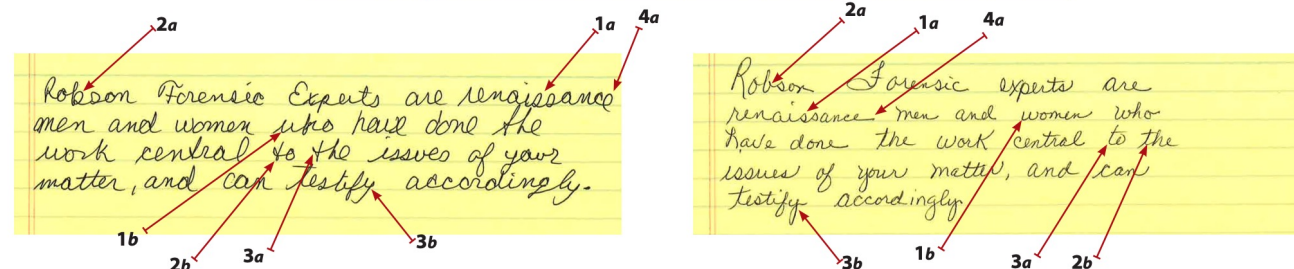 2a
1a
4a
Robson Forensic Experts are renaissance
men and women who have done the
work central to the issues of your
matter, and can testify accordingly.
1b
2b
3a
3b
2a
1a
4a
Robson Forensic experts are
renaissance men and women who
have done the work central to the
issues of your matter, and can
testify accordingly
3b
1b
3a
2b